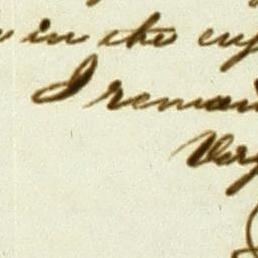 in the
I remain
Very